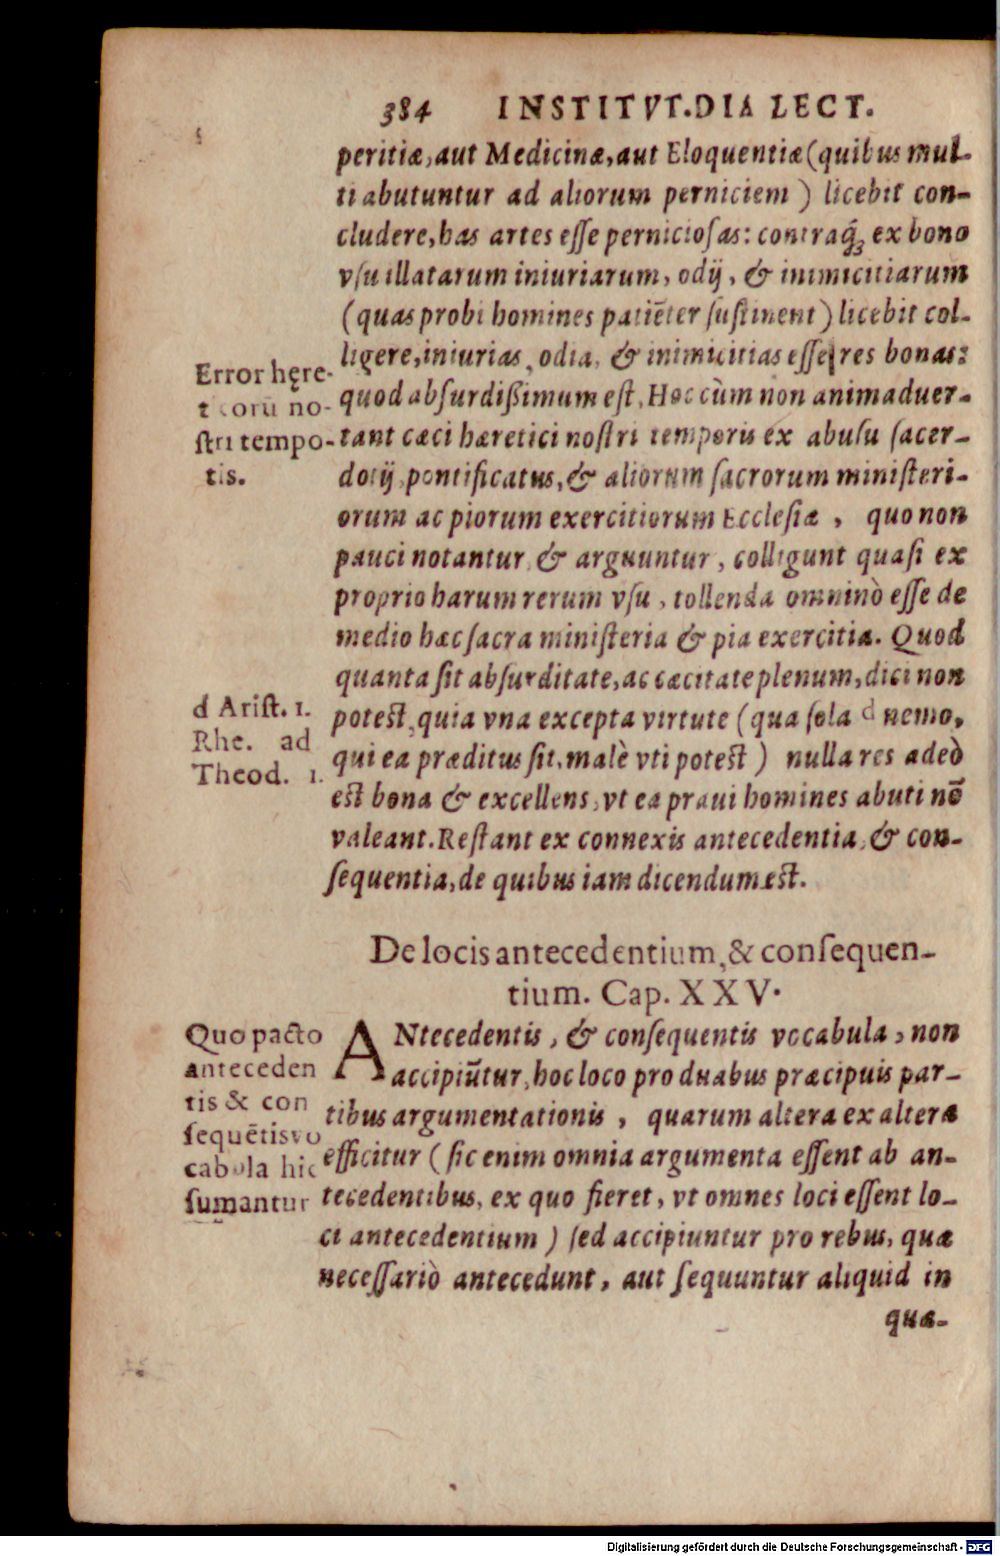 384 INSTITVT.DIALECT.
peritiæ, aut Medicinæ, aut Eloquentiæ (quibus mul-
ti abutuntur ad aliorum perniciem) licebit con-
cludere, has artes eſſe pernicioſas: contraq́ꝫ ex bono
vſu illatarum iniuriarum, odij, & inimicitiarum
(quas probi homines patiẽter ſuſtinent) licebit col-
ligere, iniurias, odia, & inimicitias eſſe res bonas:
quod abſurdißimum eſt, Hoc cùm non animaduer-
tant cæci hæretici noſtri temporis ex abuſu ſacer-
dotij, pontificatus, & aliorum ſacrorum miniſteri-
orum ac piorum exercitiorum Eccleſiæ, quo non
pauci notantur & arguuntur, colligunt quaſi ex
proprio harum rerum vſu, tollenda omninò eſſe de
medio hæc ſacra miniſteria & pia exercitia. Quod
quanta ſit abſurditate, ac cæcitate plenum, dici non
poteſt, quia vna excepta virtute (qua ſola d nemo,
qui ea præditus ſit, malè vti poteſt) nulla res adeò
eſt bona & excellens, vt ea praui homines abuti nõ
valeant. Reſtant ex connexis antecedentia, & con-
ſequentia, de quibus iam dicendum eſt.
Error hęre-
ticorũ no-
ſtri tempo-
tis.
d Ariſt. 1.
Rhe. ad
Theod. 1.
De locis antecedentium, & conſequen-
tium. Cap. XXV.
ANtecedentis, & conſequentis vocabula, non
accipiũtur, hoc loco pro duabus præcipuis par-
tibus argumentationis, quarum altera ex altera
efficitur (ſic enim omnia argumenta eſſent ab an-
tecedentibus, ex quo fieret, vt omnes loci eſſent lo-
ci antecedentium) ſed accipiuntur pro rebus, quæ
neceſſariò antecedunt, aut ſequuntur aliquid in
quæ-
Quo pacto
anteceden
tis & con
ſequẽtis vo
cabula hic
ſumantur
Digitalisierung gefördert durch die Deutsche Forschungsgemeinschaft - DFG